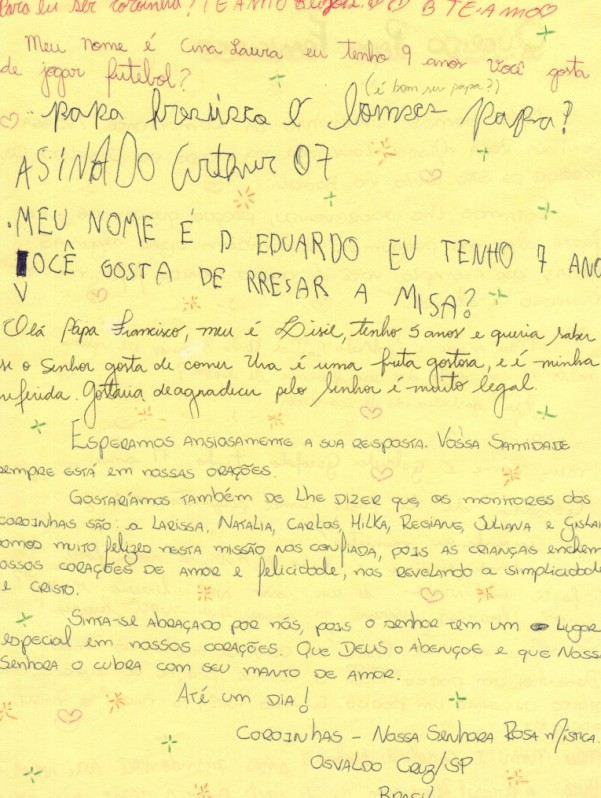 Para eu ser coroinha? TE AMO B TE-AMO
Meu nome é Ana Laura eu tenho 9 anos você gosta
de jogar futebol? (é bom ser papa?)
papa é papa?
ASINADO Artaur 07
. MEU NOME É D EDUARDO EU TENHO 7 ANO
VOCÊ GOSTA DE RRESAR A MISA?
Olá Papa Francisco, meu é Disie, tenho 5 anos e queria saber
se o Senhor gosta de comer Uva é uma fruta gostosa, e é minha
referida. Gostaria de agradecer pelo Senhor é muito legal.
ESPERAMOS ANSIOSAMENTE A SUA RESPOSTA. VOSSA SANTIDADE
SEMPRE ESTÁ EM NOSSAS ORAÇÕES.
GOSTARÍAMOS TAMBÉM DE LHE DIZER QUE, OS MONITORES DOS
COROINHAS SÃO: A LARISSA, NATALIA, CARLOS, HILKA, REGIANE, JULIANA E GISLAI
SOMOS MUITO FELIZES NESTA MISSÃO NOS CONFIADA, POIS AS CRIANÇAS ENCHEM
OSSOS CORAÇÕES DE AMOR E FELICIDADE, NOS REVELANDO A SIMPLICIDADE
E CRISTO.
SINTA-SE ABRAÇADO POR NÓS, POIS O SENHOR TEM UM LUGAR
ESPECIAL EM NOSSOS CORAÇÕES. QUE DEUS O ABENÇOE E QUE NOSSA
SENHORA O CUBRA COM SEU MANTO DE AMOR.
ATÉ UM DIA!
COROINHAS - NOSSA SENHORA ROSA MÍSTICA.
OSVALDO CRUZ/SP
BRASIL